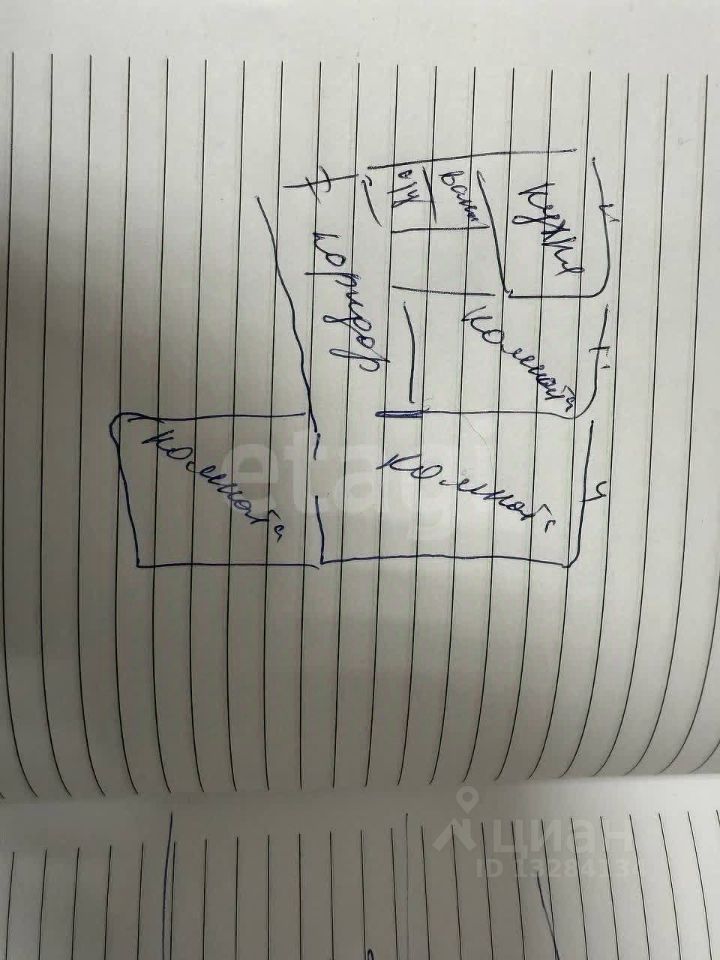 кухня
ванн
коридор
комната
комната
комната
etagi
циан
ID 13284134